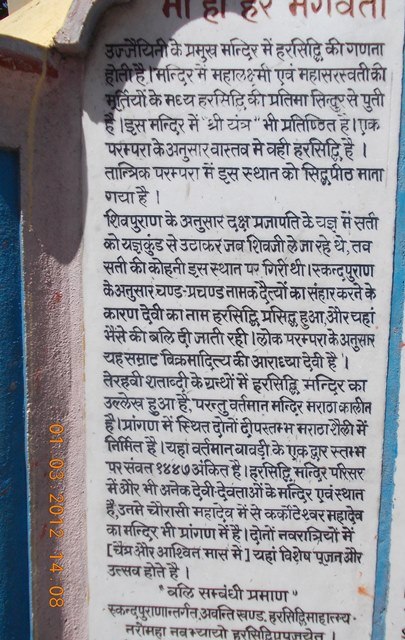 उज्जैयिनी के प्रमुख मन्दिर में हरसिद्धि की गणना
होती है। मन्दिर में महालक्ष्मी एवं महासरस्वती की
मुर्तियों के मध्य हरसिद्धि की प्रतिमा सिन्दुर से पुती
है। इस मन्दिर में "श्री यंत्र" भी प्रतिष्ठित है। एक
परम्परा के अनुसार वास्तव मे वही हरसिद्धि है।
तान्त्रिक परम्परा में इस स्थान को सिद्धपीठ माना
गया है।
शिवपुराण के अनुसार दक्ष प्रजापति के यज्ञ में सती
को यज्ञकुंड से उठाकर जब शिवजी ले जा रहे थे, तव
सती की कोहनी इस स्थान पर गिरी थी। स्कन्दपुराण
के अनुसार चण्ड-प्रचण्ड नामक दैत्यों का संहार करने के
कारण देवी का नाम हरसिद्धि प्रसिद्ध हुआ, और यहां
भैसे की बलि दी जाती रही। लोक परम्परा के अनुसार
यह सम्राट विक्रमादित्य की आराध्या देवी है।
तेरहवी शताब्दी के ग्रंथों में हरसिद्धि मन्दिर का
उल्लेख हुआ है, परन्तु वर्तमान मन्दिर मराठा कालीन
है। प्रांगण में स्थित दोनों दीपस्तम्भ मराठा शैली में
निर्मित है। यहा वर्तमान बावड़ी के एक द्वार स्तम्भ
पर संवत १४४७ अंकित है। हरसिद्धि मन्दिर परिसर
में और भी अनेक देवी-देवताओं के मन्दिर एवं स्थान
है, उनमे चौरासी महादेव में से कर्कोटेश्वर महादेव
का मन्दिर भी प्रांगण में है। दोनों नवरात्रियों में
[चैत्र और आश्वित मास में] यहां विशेष पूजन और
उत्सव होते है।
"बलि सम्बंधी प्रमाण"
स्कन्दपुराणान्तर्गत, अवन्ति खण्ड, हरसिद्धिमाहात्म्य-
01.03.2012 14:08